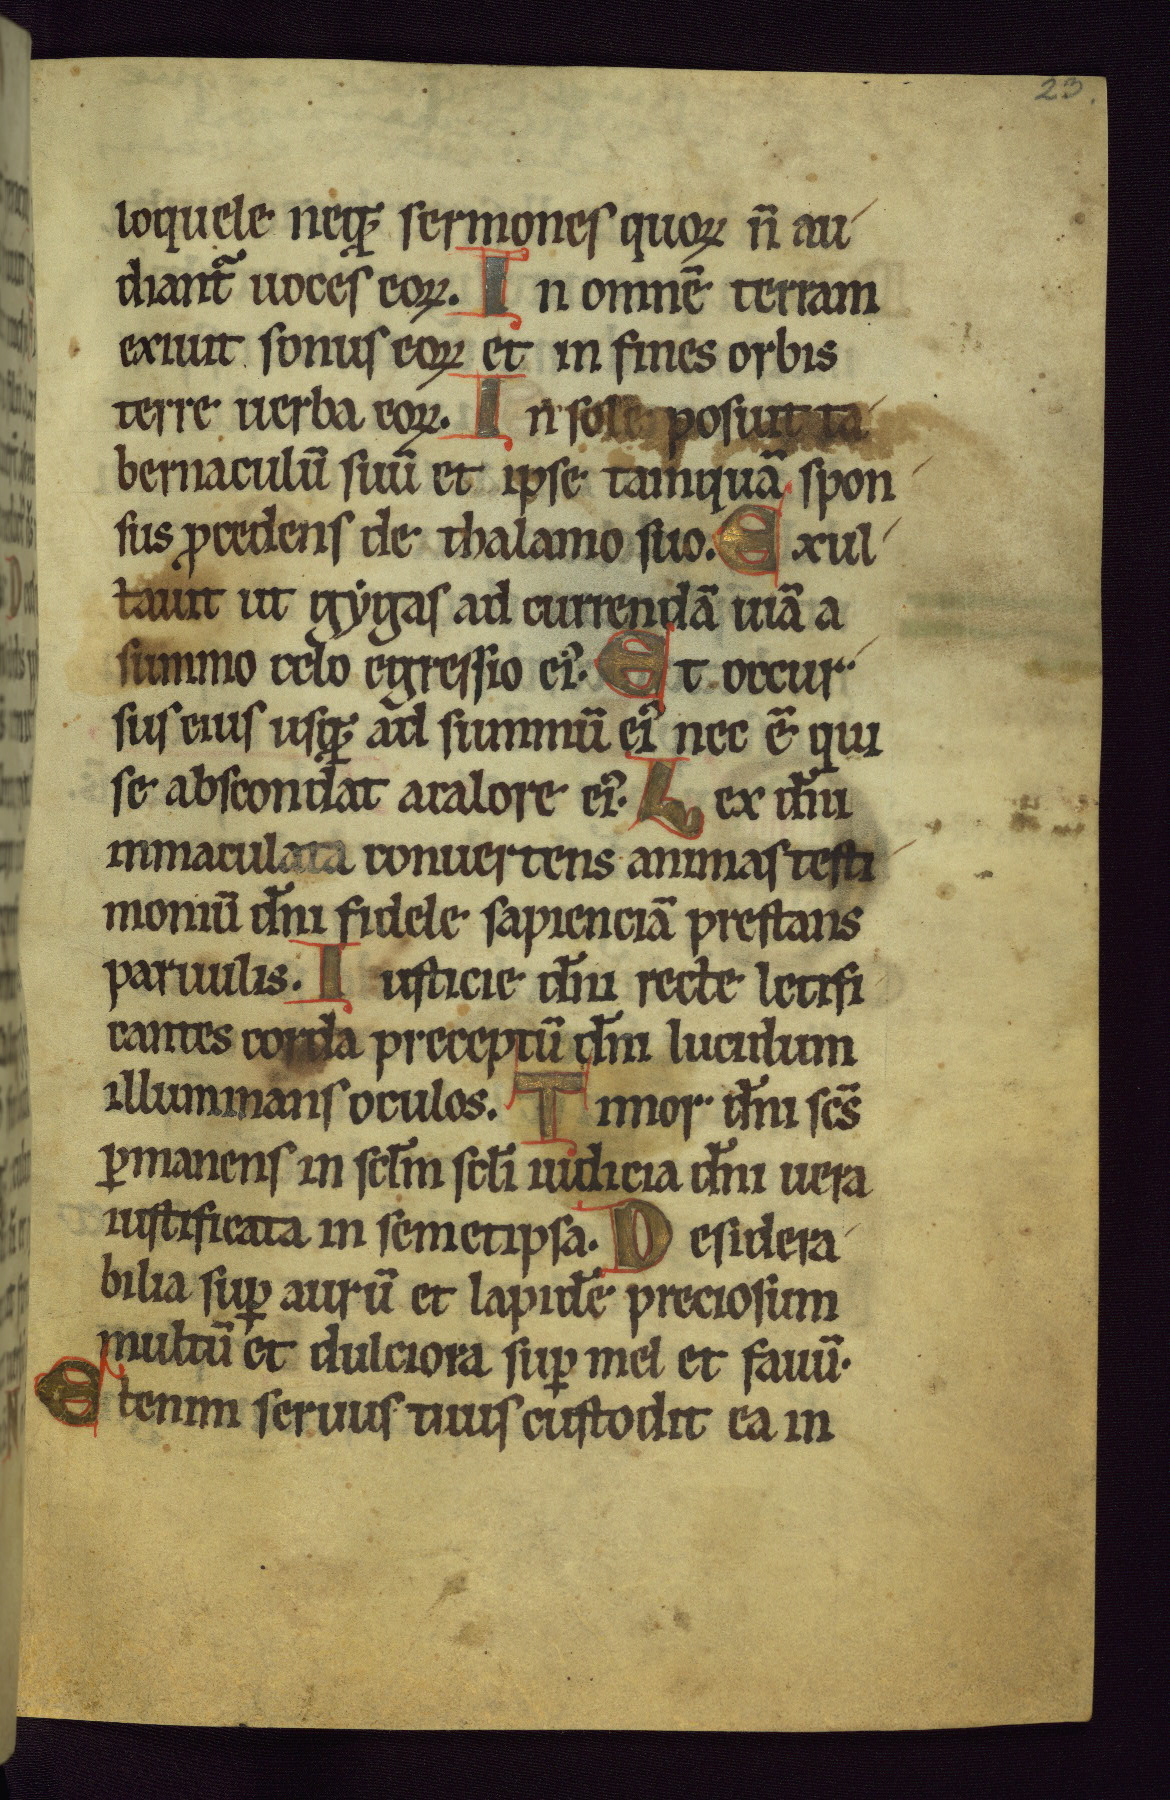 23.
loquele neqꝫ sermones quoꝝ n̄ au
diant᷑ uoces eoꝝ. In omnē terram
exiuit sonus eoꝝ et in fines orbis
terre uerba eoꝝ. In sole posuit ta
bernaculū suū et ipse tamquā spon
sus ꝓcedens de thalamo suo. Exul
tauit ut gẏgas ad currendā uiā a
summo celo egressio ei᷒. Et occur
sus eius usqꝫ ad summū ei᷒ nec ē qui
se abscondat acalore ei᷒. Lex dn̄i
inmaculata conuertens animas testi
moniū dn̄i fidele sapienciā prestans
paruulis. Iusticie dn̄i recte letifi
cantes corda preceptū dn̄i lucidum
illuminans oculos. Timor dn̄i scs̄
ꝑmanens in scl̄m scl̄i iudicia dn̄i uera
iustificata in semetipsa. Desidera
bilia suꝑ aurū et lapidē preciosum
multū et dulciora suꝑ mel et fauū.
Etenim seruus tuus custodit ea in